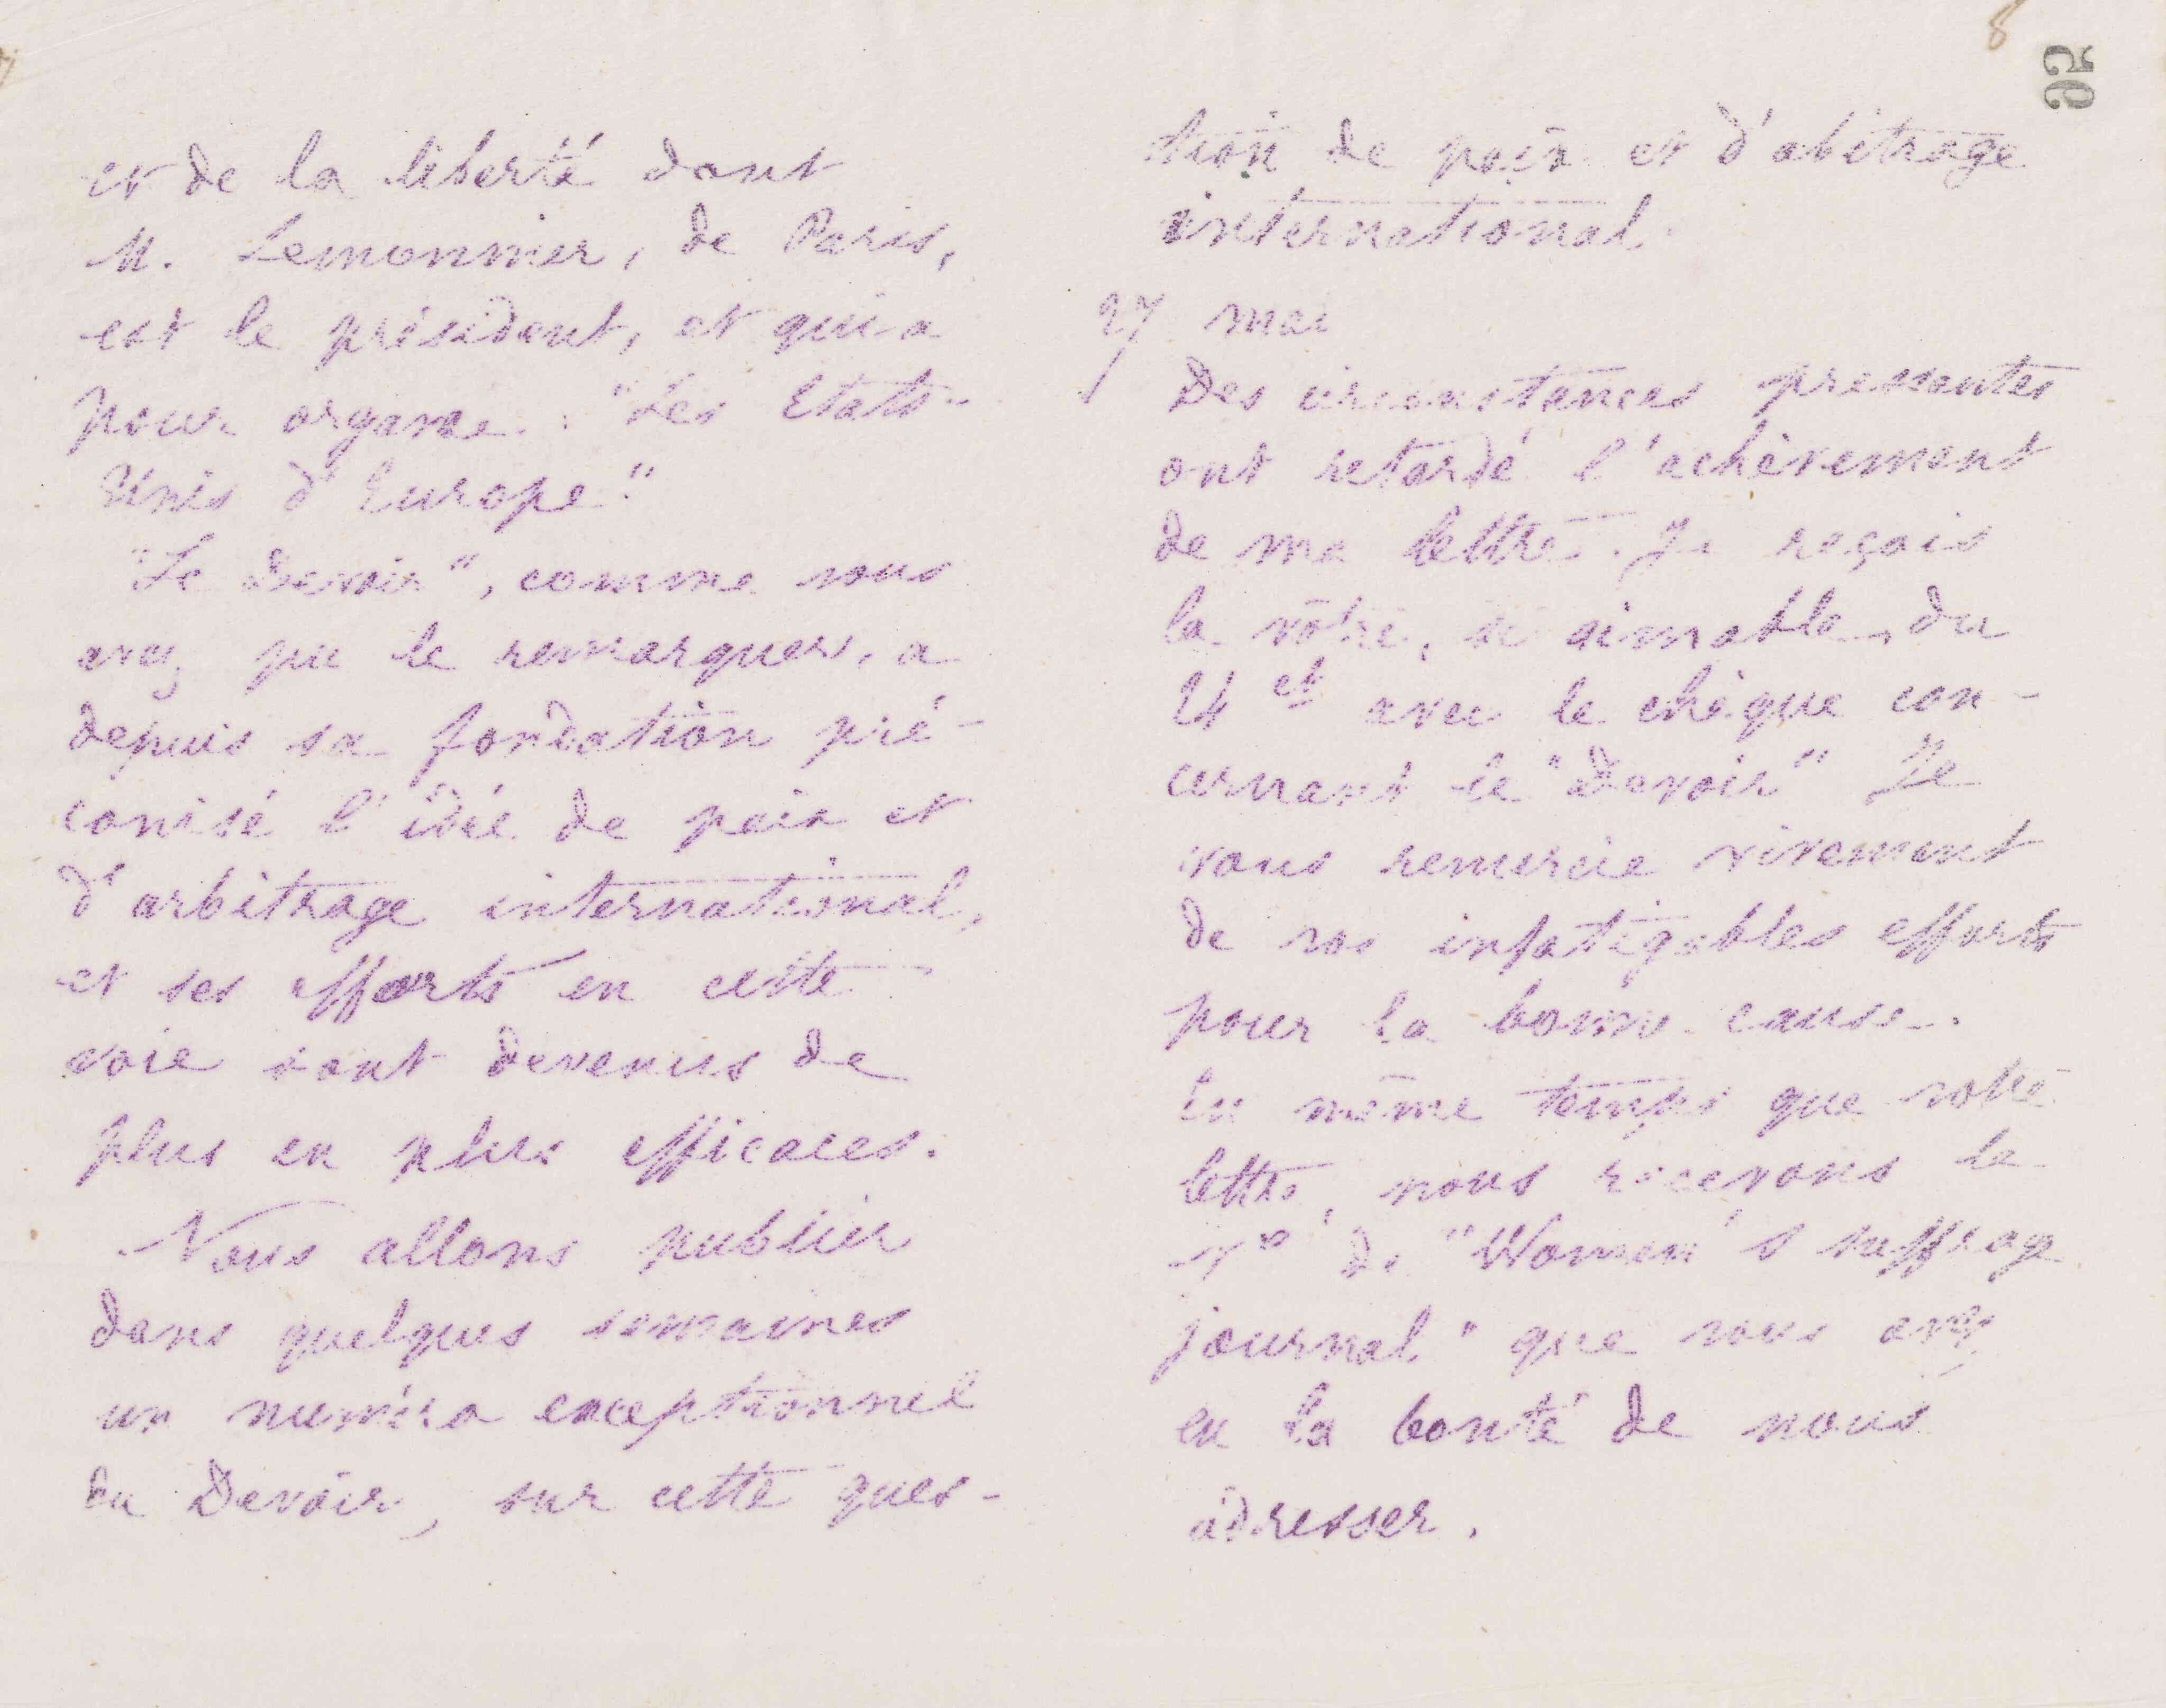 et de la liberté dont
M. Lemonnier, de Paris,
est le président, et qui a
pour organe : "Les Etats-
Unis d'Europe."
"Le Devoir", comme vous
avez pu le remarquer, a
depuis sa fondation pré-
conisé l'idée de paix et
d'arbitrage international,
et ses efforts en cette
voie sont devenus de
plus en plus efficaces.
Nous allons publier
dans quelques semaines
un numéro exceptionnel
du Devoir, sur cette ques-
8
95
tion de paix et d'abitrage
international.
27 mai
Des circonstances pressantes
ont retardé l'achèvement
de ma lettre. Je reçois
la vôtre, si aimable, du
24 ct avec le chèque con-
cernant le "Devoir" Je
vous remercie vivement
de vos infatigables efforts
pour la bonne cause.
En même temps que votre
lettre, nous recevons le
No de "Women's suffrage
journal" que vous avez
eu la bonté de nous
adresser.